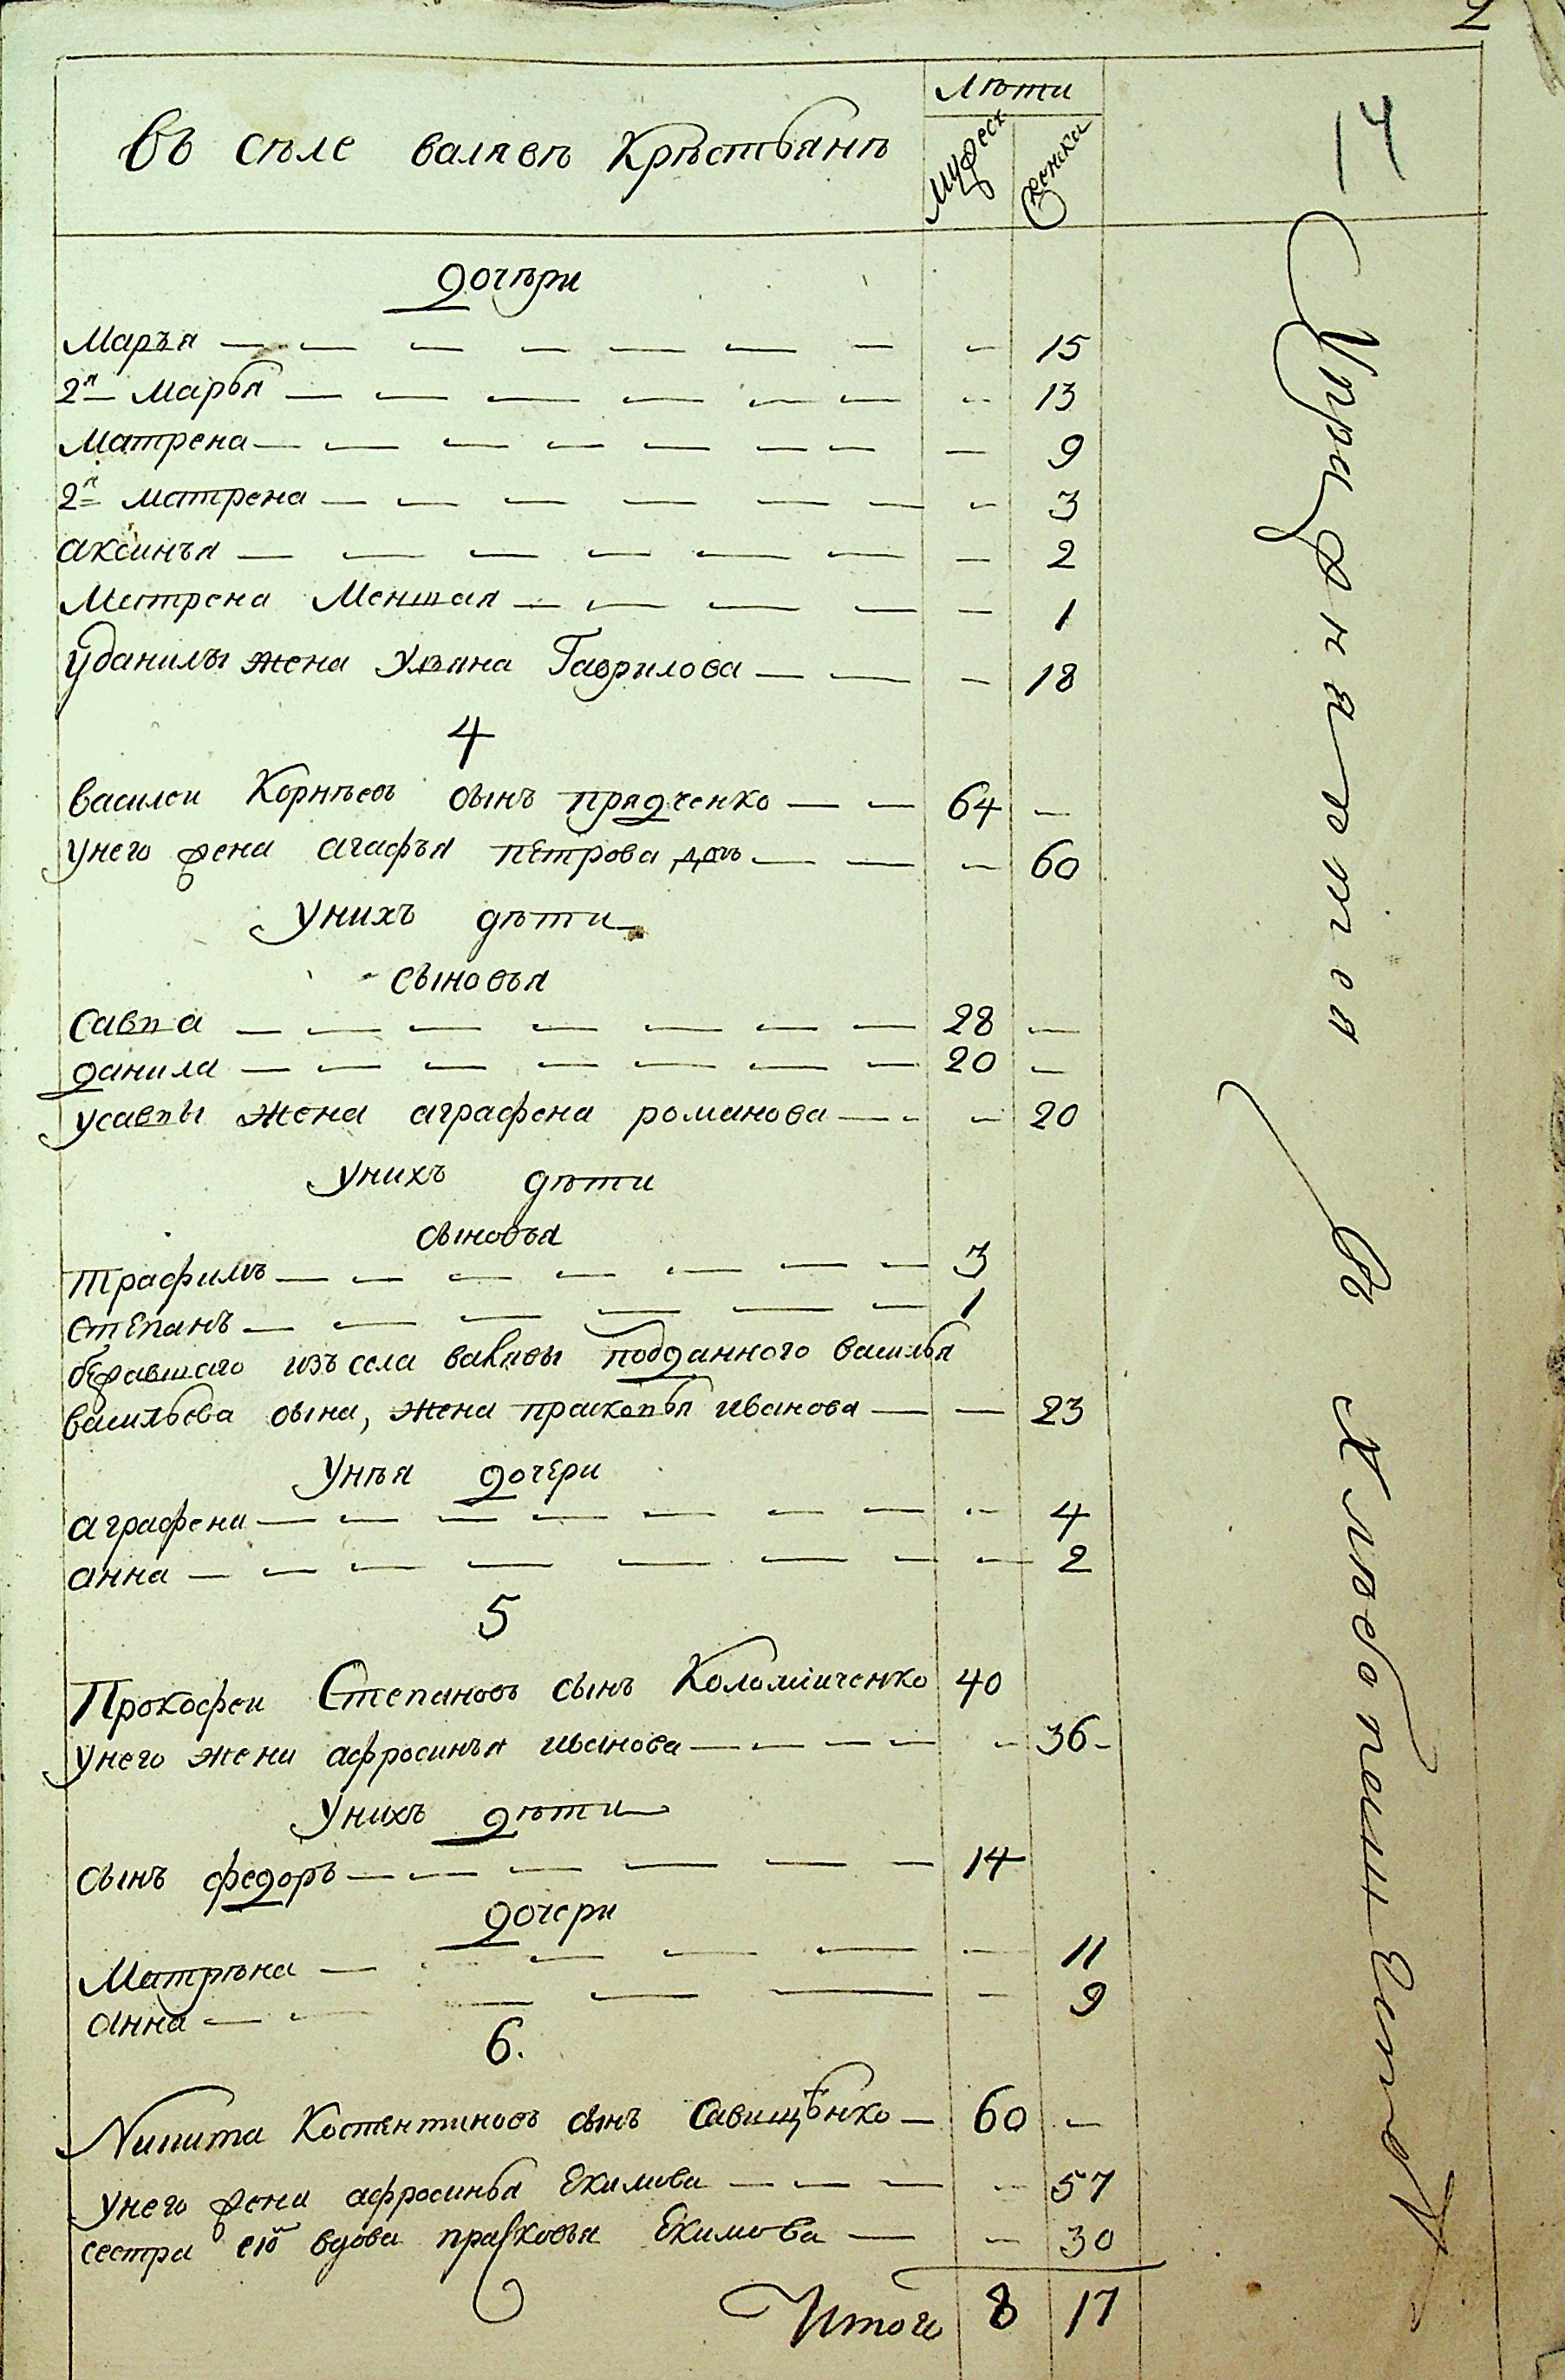 2
14
Въ селе валяве Крѣстьянъ
Лѣти
Мужеск
женска
дочѣри
Марья — 15
2я Марья — 13
Матрена — 9
2я матрена — 3
аксинья — 2
Матрена Меншая — 1
у данилы жена Ульяна Гаврилова — 18
4
василеи Корнѣевъ сынъ прядченко — 64 —
унего жена агафья пЕтрова дочь — 60
Унихъ дѣти
сыновья
Савпа — 28 —
данила — 20 —
усавпы жена аграфена романова — 20
Унихъ дѣти
сыновья
трафимъ — 3
стЕпанъ — 1
бежавшаго изъ села валявы подданного василья
васильева сына, жена прасковья иванова — 23
Унѣя дочЕри
аграфена — 4
анна — 2
5
Прокофеи Степановъ сынъ Коломиченко 40
унего жена афросинья иванова — 36
Унихъ дѣти
сынъ федоръ — 14
дочери
Матрѣна — 11
анна — 9
6.
Никита Костентиновъ сынъ Савищенко — 60 —
унего жена афросинья Екимова — 57
сестра ею вдова прасковья Екимова — 30
Итого 8 17